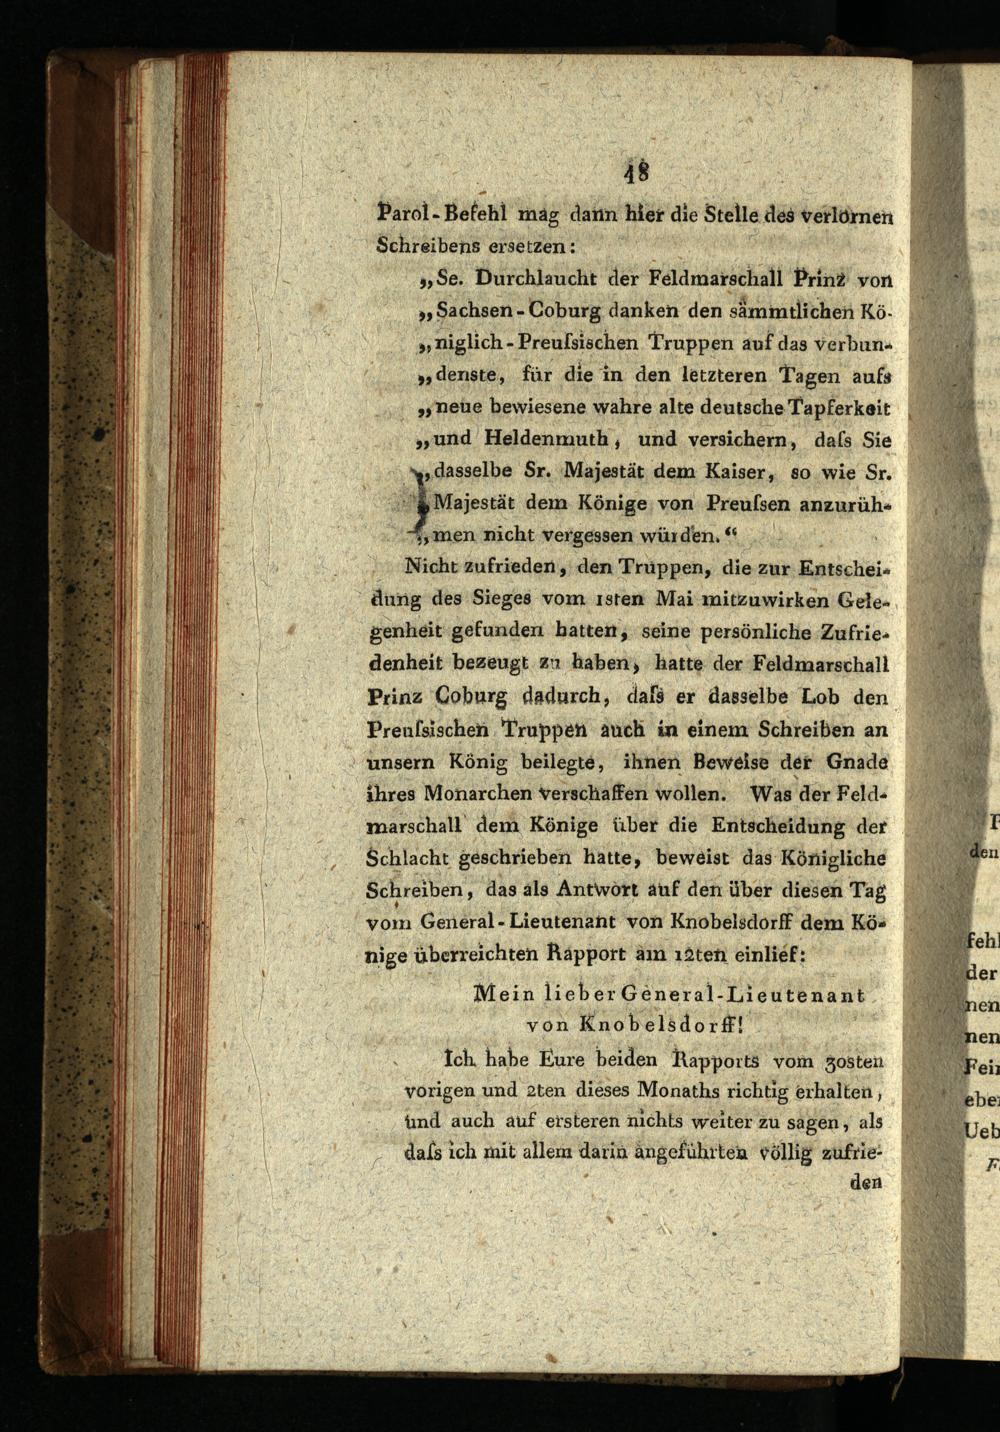 48
Parol-Befehl mag dann hier die Stelle des verlornen
Schreibens ersetzen:
„Se. Durchlaucht der Feldmarschall Prinz von
„Sachsen-Coburg danken den sämmtlichen Kö-
„niglich-Preuſsischen Truppen auf das verbun-
„denste, für die in den letzteren Tagen aufs
„neue bewiesene wahre alte deutsche Tapferkeit
„und Heldenmuth, und versichern, daſs Sie
„dasselbe Sr. Majestät dem Kaiser, so wie Sr.
„Majestät dem Könige von Preuſsen anzurüh-
„men nicht vergessen würden.“
Nicht zufrieden, den Truppen, die zur Entschei-
dung des Sieges vom 1sten Mai mitzuwirken Gele-
genheit gefunden hatten, seine persönliche Zufrie-
denheit bezeugt zu haben, hatte der Feldmarschall
Prinz Coburg dadurch, daſs er dasselbe Lob den
Preuſsischen Truppen auch in einem Schreiben an
unsern König beilegte, ihnen Beweise der Gnade
ihres Monarchen verschaffen wollen. Was der Feld-
marschall dem Könige über die Entscheidung der
Schlacht geschrieben hatte, beweist das Königliche
Schreiben, das als Antwort auf den über diesen Tag
vom General-Lieutenant von Knobelsdorff dem Kö-
nige überreichten Rapport am 12ten einlief:
Mein lieber General-Lieutenant
von Knobelsdorff!
Ich habe Eure beiden Rapports vom 30sten
vorigen und 2ten dieses Monaths richtig erhalten,
und auch auf ersteren nichts weiter zu sagen, als
daſs ich mit allem darin angeführten völlig zufrie-
den
den
fehl
der
nen
nen
Fei
ebe
Ueb